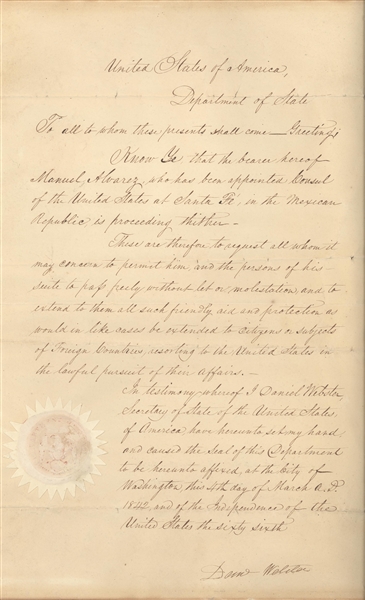 United States of America,
Department of State
To all to whom these presents shall come_Greeting;
Know Ye that the bearer hereof
Manuel Alvarez, who has been appointed Consul
of the United States at Santa Fé, in the Mexican
Republic is proceeding thither_
These are therefore to request all whom it
may concern to permit him and the persons of his
suite to pass freely without let or molestation, and to
extend to them all such friendly aid and protection as
would in like cases be extended to citizens or subjects
of Foreign Countries, resorting to the United States in
the lawful pursuit of their affairs._
In testimony whereof I Daniel Webster,
Secretary of State of the United States,
of America have hereunto set my hand
and caused the Seal of this Department
to be hereunto affixed, at the City of
Washington this 4th day of March A.D.
1842, and of the Independence of the
United States the sixty sixth
Danl Webster